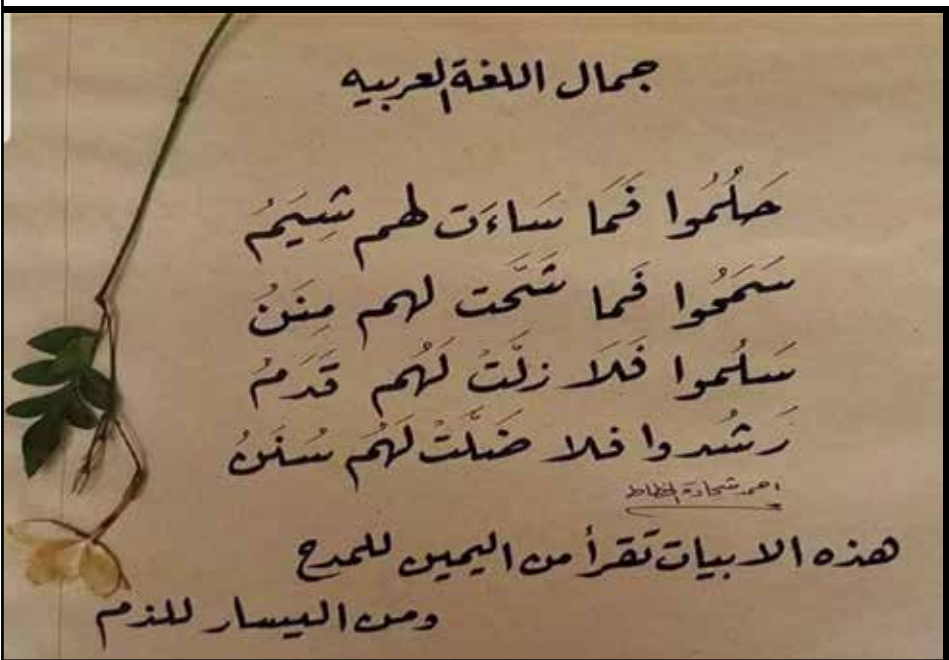 جمال اللغة العربيه
حَلُمُوا فَمَا سَاءَت لهم شِيَمُ
سَمَحُوا فَما شَحَّت لهم مِنَنُ
سَلُموا فَلَا زلَّتْ لَهُم قَدَمُ
رَشَدوا فلا ضَلَّتْ لَهُم سُنَنُ
احمد شحادة الخطاط
هذه الابيات تقرأ من اليمين للمدح
ومن اليسار للذم